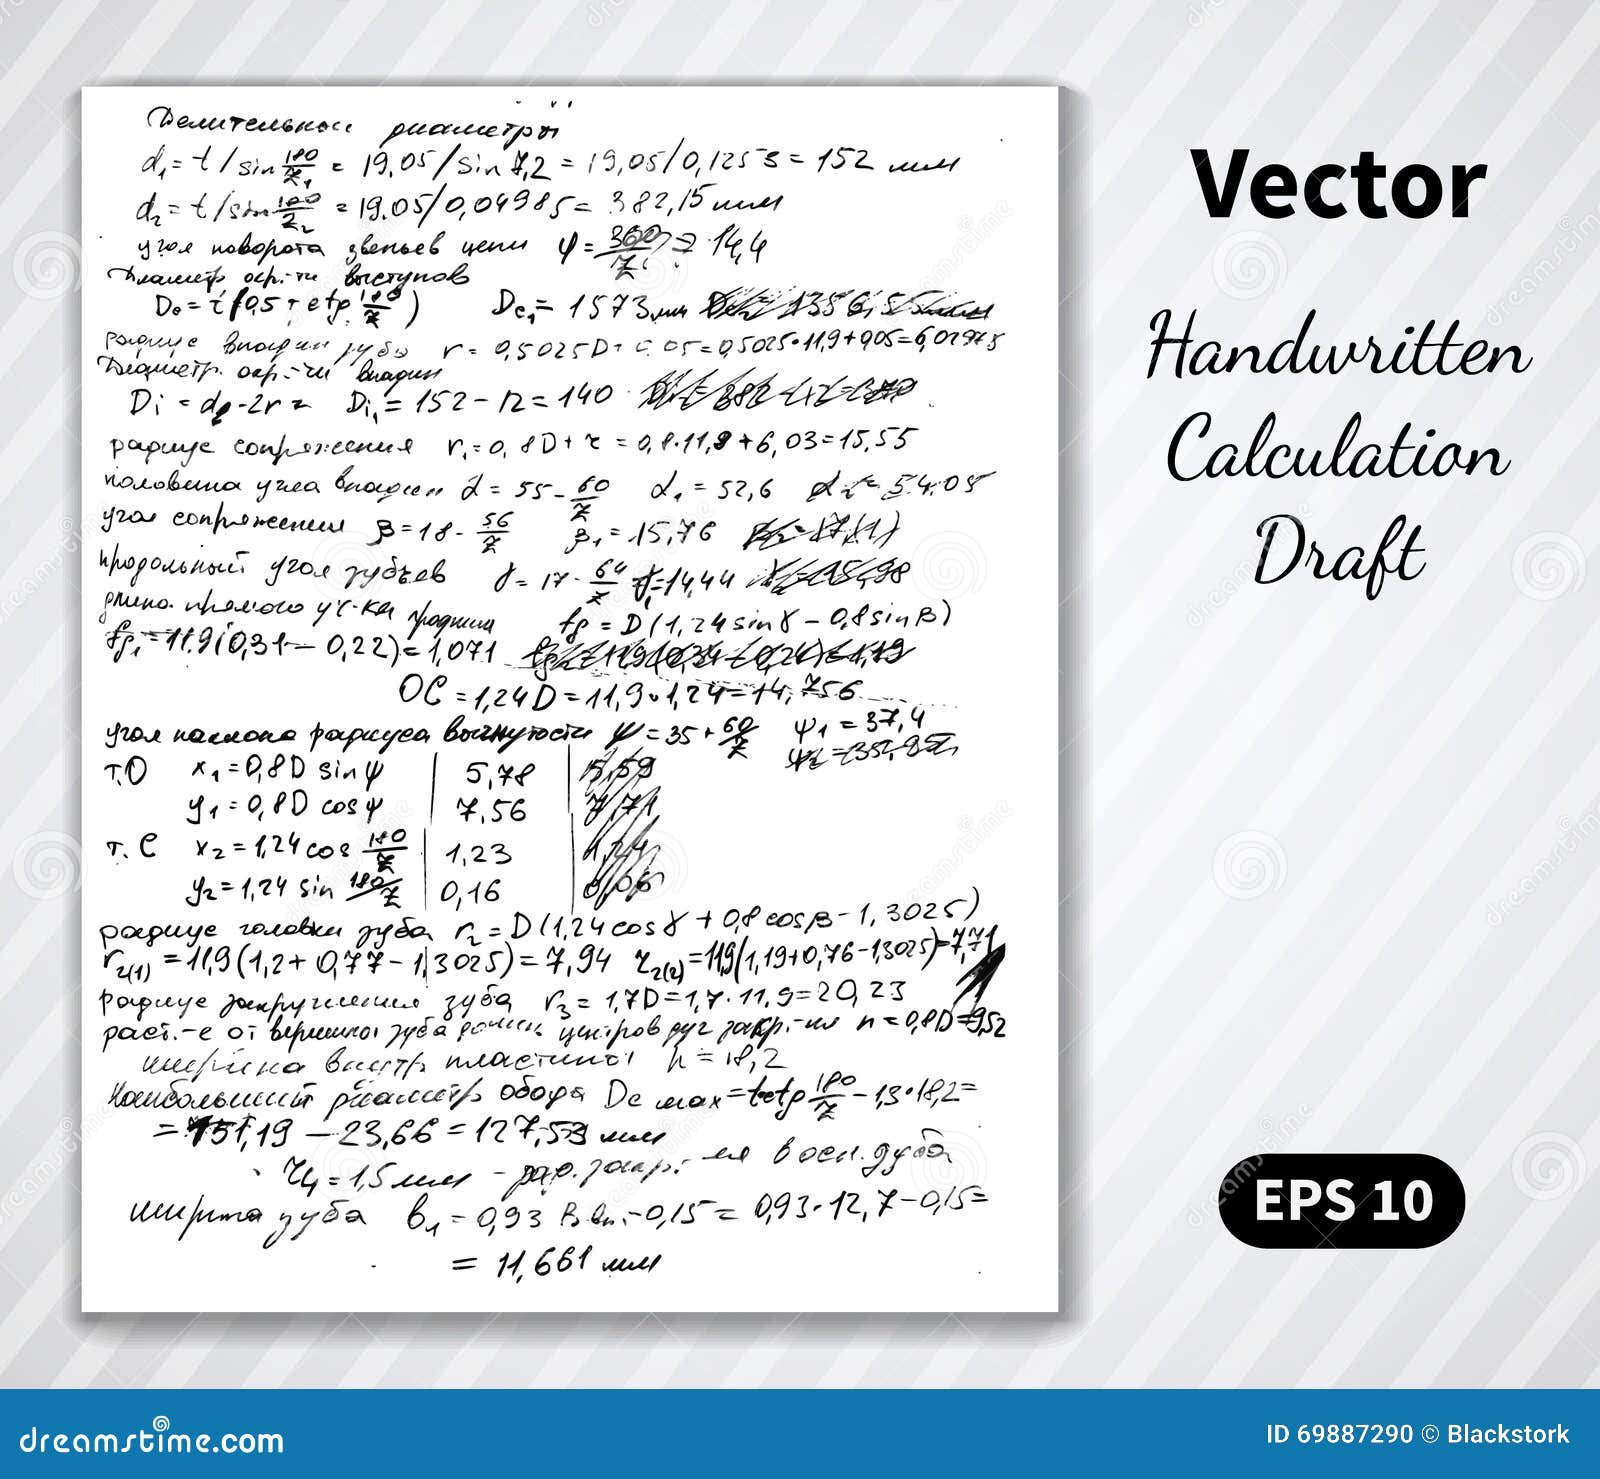 Делительные диаметры
d₁ = t / sin 180/z₁ = 19,05 / sin 7,2 = 19,05 / 0,1253 = 152 мм
d₂ = t / sin 180/z₂ = 19.05 / 0,04985 = 382,15 мм
угол поворота звеньев цепи φ = 360/z = 14,4
Диаметр окр-ти выступов
De = t (0,5 + ctg 180/z) De₁ = 1573 мм
радиус впадин зуба r = 0,5025D + 0.05 = 0,5025·11,9+0,05=6,02975
Диаметр. окр-ти впадин
Di = d₂-2r = Di₁ = 152 - 12 = 140
радиус сопряжения r₁ = 0,8D + r = 0,8·11,9+6,03=15,55
половина угла впадин α = 55 - 60/z α₁ = 52,6 = 54.05
угол сопряжения β = 18 - 56/z β₁ = 15,76
продольный угол зубьев γ = 17 - 64/z γ₁=14,44
длина прямого уч-ка профиля fg = D (1,24 sin γ - 0,8 sin β)
fg₁ = 11.9 (0,31 - 0,22) = 1,071
OC = 1,24 D = 11,9·1,24 = 14,756
угол наклона радиуса вогнутости ψ = 35 + 60/z ψ₁ = 37,4
т.О x₁ = 0,8D sin ψ 5,78
y₁ = 0,8D cos ψ 7,56
т. С x₂ = 1,24 cos 180/z 1,23
y₂ = 1,24 sin 180/z 0,16
радиус головки зуба r₂ = D (1,24 cos γ + 0,8 cos β - 1,3025)
r₂₍₁₎ = 11,9 (1,2 + 0,77 - 1,3025) = 7,94 r₂₍₂₎ = 11,9 (1,19+0,76-1,3025)=7,71
радиус закругления зуба r₃ = 1,7D = 1,7·11,9 = 20,23
раст.-е от вершины зуба до центров дуг закр.-ия h = 0,8D = 9,52
ширина внутр пластины h = 18,2
Наибольший диаметр обода Dc max = t ctg 180/z - 1,3·18,2 =
= 151,19 - 23,66 = 127,53 мм
r₄ = 1,5 мм - рад. закр.-ия в осн. зуба
ширина зуба в₁ = 0,93 Ввн. - 0,15 = 0,93·12,7 - 0,15 =
= 11,661 мм
Vector
Handwritten
Calculation
Draft
EPS 10
dreamstime.com
ID 69887290 © Blackstork